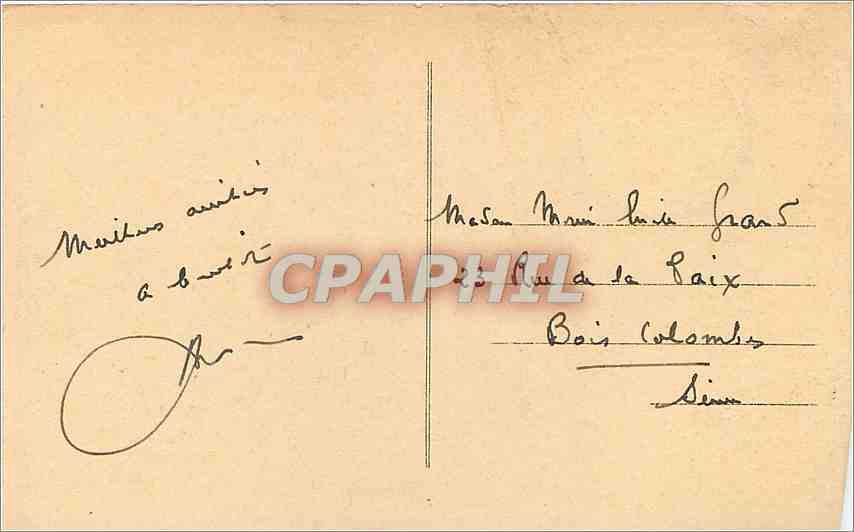 Meilleures amitiés
a bientôt
Madame
Grand
23 Rue de la Paix
Bois Colombes
Seine
CPAPHIL